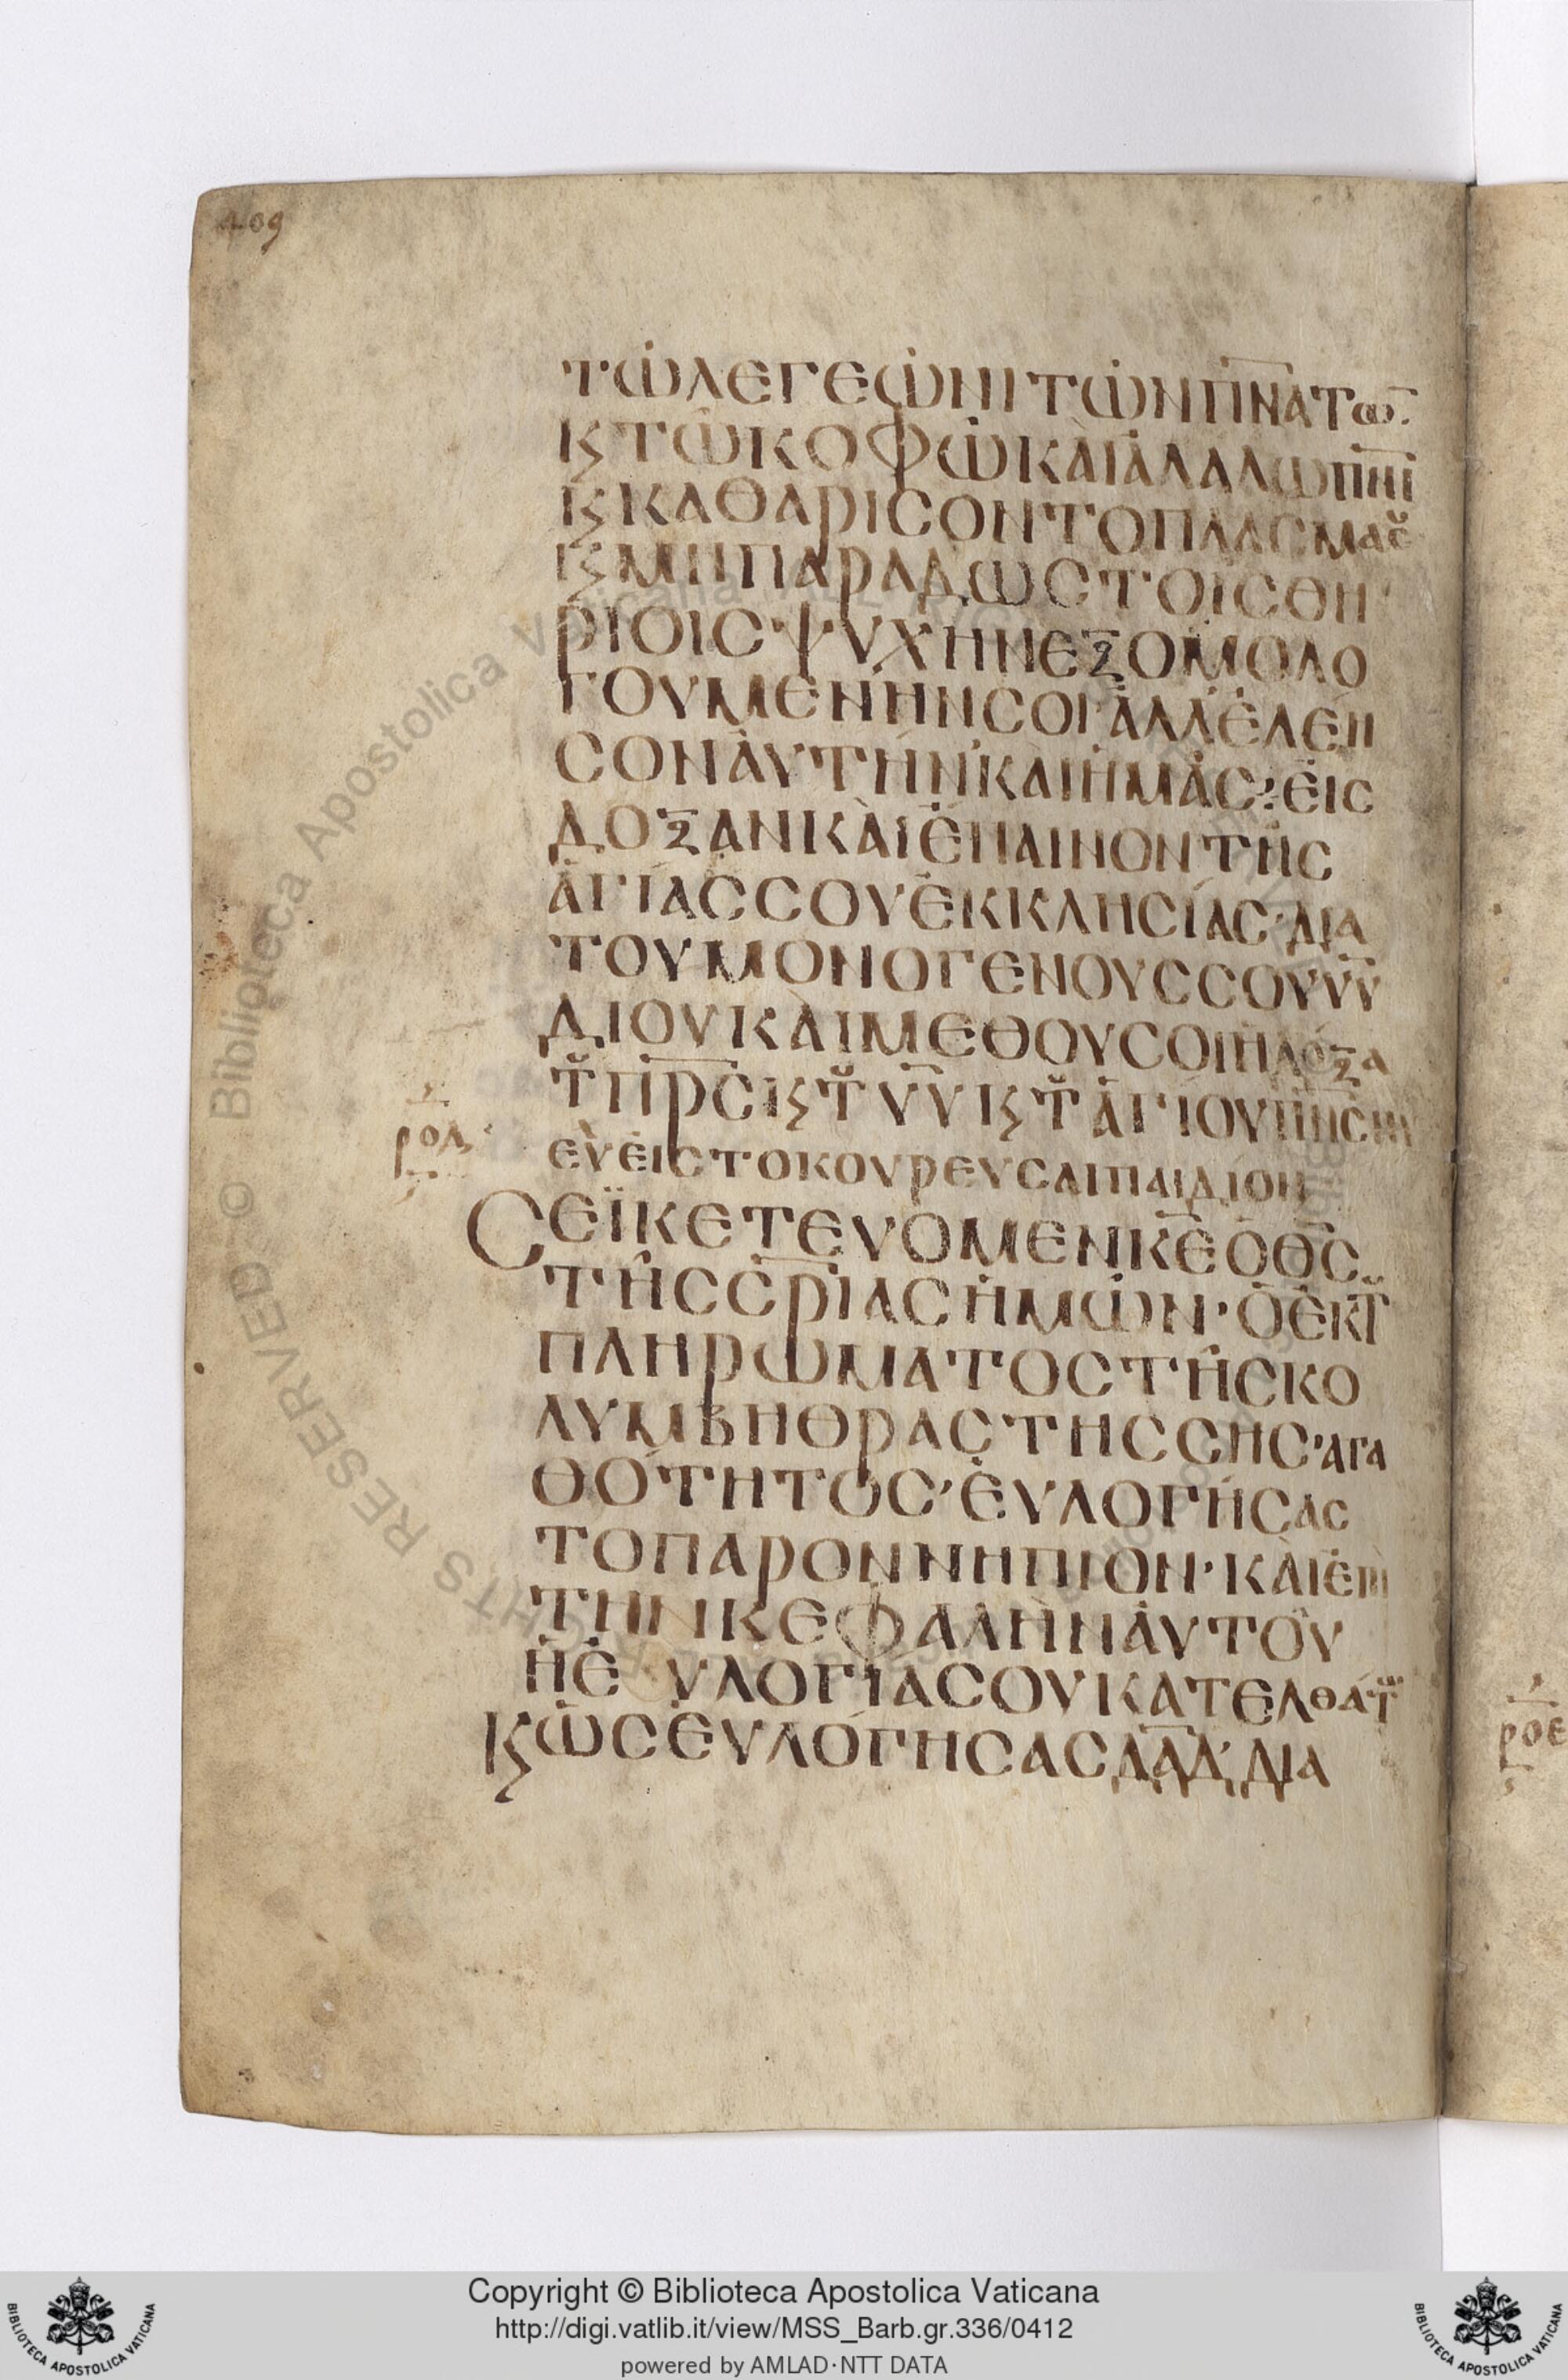 409
ΤѠΛΕΓΕѠΝΙΤѠΝΠ̅Ν̅ΑΤω̅.
ΚςΤѠΚΟΦѠΚΑΙΑΛΑΛѠΠ̅Ν̅Ι
ΚςΚΑΘΑΡΙϹΟΝΤΟΠΛΑϹΜΑϹ
ΚςΜΗΠΑΡΑΔѠϹΤΟΙϹΘΗ
ΡΙΟΙϹΨΥΧΗΝΕΞΟΜΟΛΟ
ΓΟΥΜΕΝΗΝϹΟΙ·ΑΛΛΕΛΕΗ
ϹΟΝΑΥΤΗΝ·ΚΑΙΗΜΑϹ:ΕΙϹ
ΔΟΞΑΝΚΑΙΕΠΑΙΝΟΝΤΗϹ
ΑΓΙΑϹϹΟΥΕΚΚΛΗϹΙΑϹ·ΔΙΑ
ΤΟΥΜΟΝΟΓΕΝΟΥϹϹΟΥΥ̅Υ̅
ΔΙΟΥΚΑΙΜΕΘΟΥϹΟΙΗΔΟΞΑ
Τ̆Π̅Ρ̅ϹΚςΤ̆Υ̅Υ̅ΚςΤ̆ΑΓΙΟΥΠ̅Ν̅ϹΝΥ
ροδ
ΕΥΕΙϹΤΟΚΟΥΡΕΥϹΑΙΠΑΙΔΙΟΝ
ϹΕΪΚΕΤΕΥΟΜΕΝΚ̅Ε̅ΟΘ̅Ϲ̅
ΤΗϹϹ̅Ρ̅ΙΑϹΗΜѠΝ·ΟΕΚΤ̆
ΠΛΗΡѠΜΑΤΟϹΤΗϹΚΟ
ΛΥΜΒΗΘΡΑϹΤΗϹϹΗϹ·ΑΓΑ
ΘΟΤΗΤΟϹ·ΕΥΛΟΓΗϹΑϹ
ΤΟΠΑΡΟΝΝΗΠΙΟΝ·ΚΑΙΕΠΙ
ΤΗΝΚΕΦΑΛΗΝΑΥΤΟΥ
ΗΕΥΛΟΓΙΑϹΟΥΚΑΤΕΛΘΑΤ
ΚςѠϹΕΥΛΟΓΗϹΑϹΔ̅Α̅Δ̅·ΔΙΑ
ροε
Copyright © Biblioteca Apostolica Vaticana
http://digi.vatlib.it/view/MSS_Barb.gr.336/0412
powered by AMLAD·NTT DATA
BIBLIOTECA APOSTOLICA VATICANA
BIBLIOTECA APOSTOLICA VATICANA